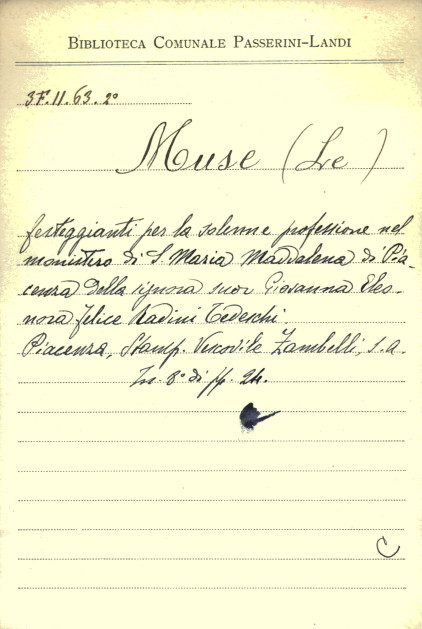 BIBLIOTECA COMUNALE PASSERINI-LANDI
3F.11.63.2º
Muse (Le)
festeggianti per la solenne professione nel
monistero di S. Maria Maddalena di Pia-
cenza della signora suor Giovanna Eleo-
nora Felice Radini Tedeschi.
Piacenza, Stamp. Vescovile Zambelli, s.a.
In 8º di pp. 24.
C